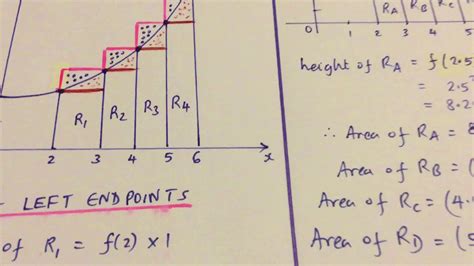 R₁ R₂ R₃ R₄
2 3 4 5 6 x
LEFT ENDPOINTS
of R₁ = f(2) × 1
R_A R_B R_C
0 1 2 3 4 5
height of R_A = f(2.5
= 2.5
= 8.2
∴ Area of R_A = 8
Area of R_B = (
Area of R_C = (4.
Area of R_D = (5